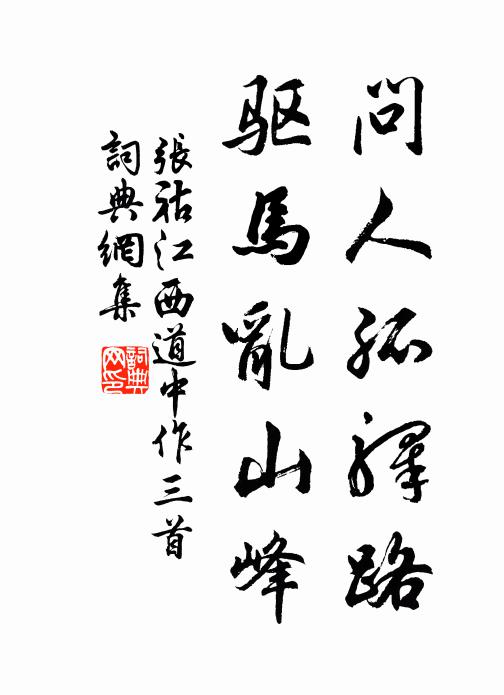 问人孤驿路
驱馬亂山峰
張祜江西道中作三首
詞典網集
詞典网印